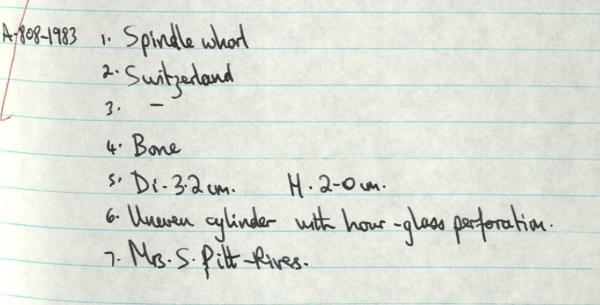 A-808-1983 1. Spindle whorl
2. Switzerland
3. -
4. Bone
5. Di. 3.2 cm. H. 2.0 cm.
6. Uneven cylinder with hour-glass perforation.
7. Mrs. S. Pitt-Rives.